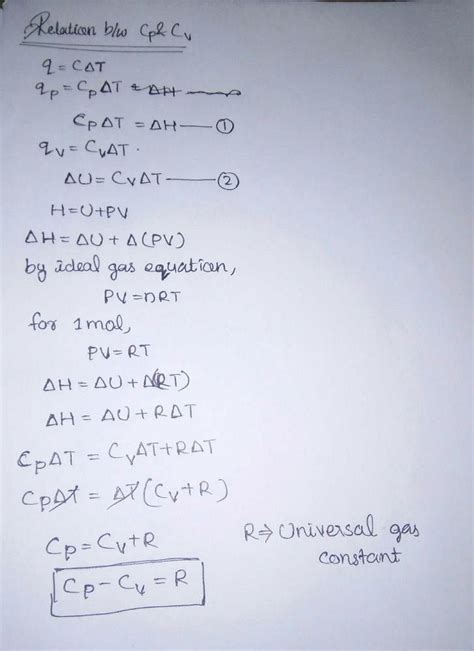 Relation b/w Cp & Cv
q = CΔT
qp = CpΔT = ΔH
CpΔT = ΔH — ①
qv = CvΔT.
ΔU = CvΔT — ②
H = U + PV
ΔH = ΔU + Δ(PV)
by ideal gas equation,
PV = nRT
for 1 mol,
PV = RT
ΔH = ΔU + Δ(RT)
ΔH = ΔU + RΔT
CpΔT = CvΔT + RΔT
CpΔT = ΔT (Cv + R)
Cp = Cv + R
Cp - Cv = R
R ⇒ Universal gas
constant